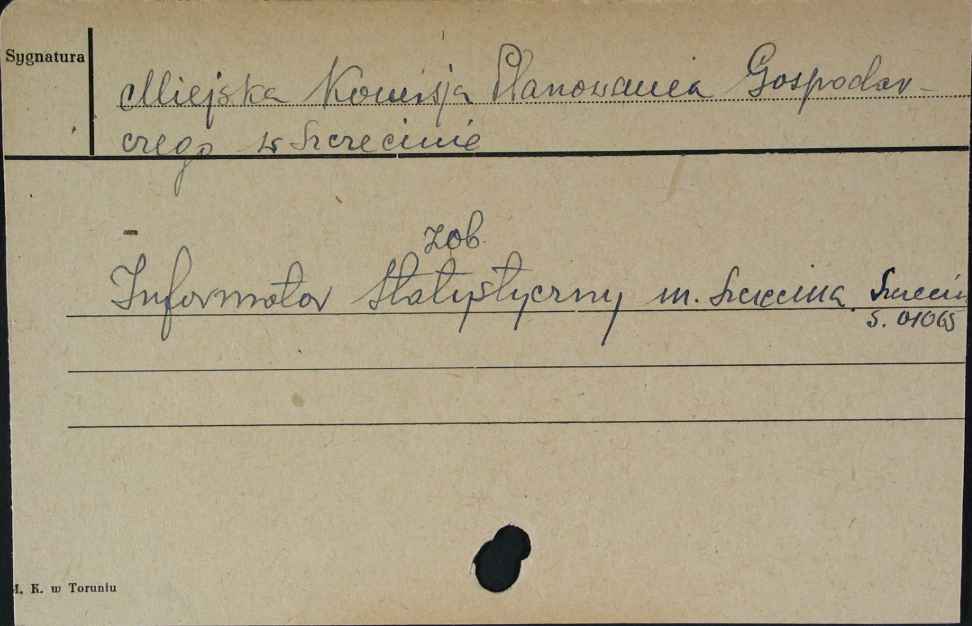 Sygnatura
Miejska Komisja Planowania Gospodar-
czego w Szczecinie
zob.
Informator Statystyczny m. Szczecina. Szczecin
S. 01065
M. K. w Toruniu